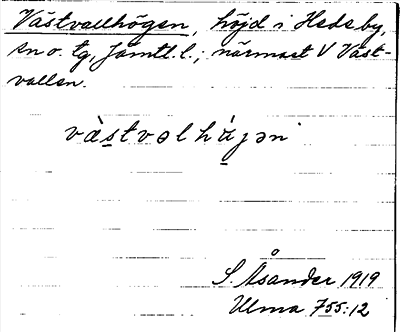 Västvallhögen, höjd i Hede by,
sn o. tg, Jämtl. l.; närmast V Väst-
vallen.
vàstvəlhàjən
S. Åsander 1919
Ulma 755:12